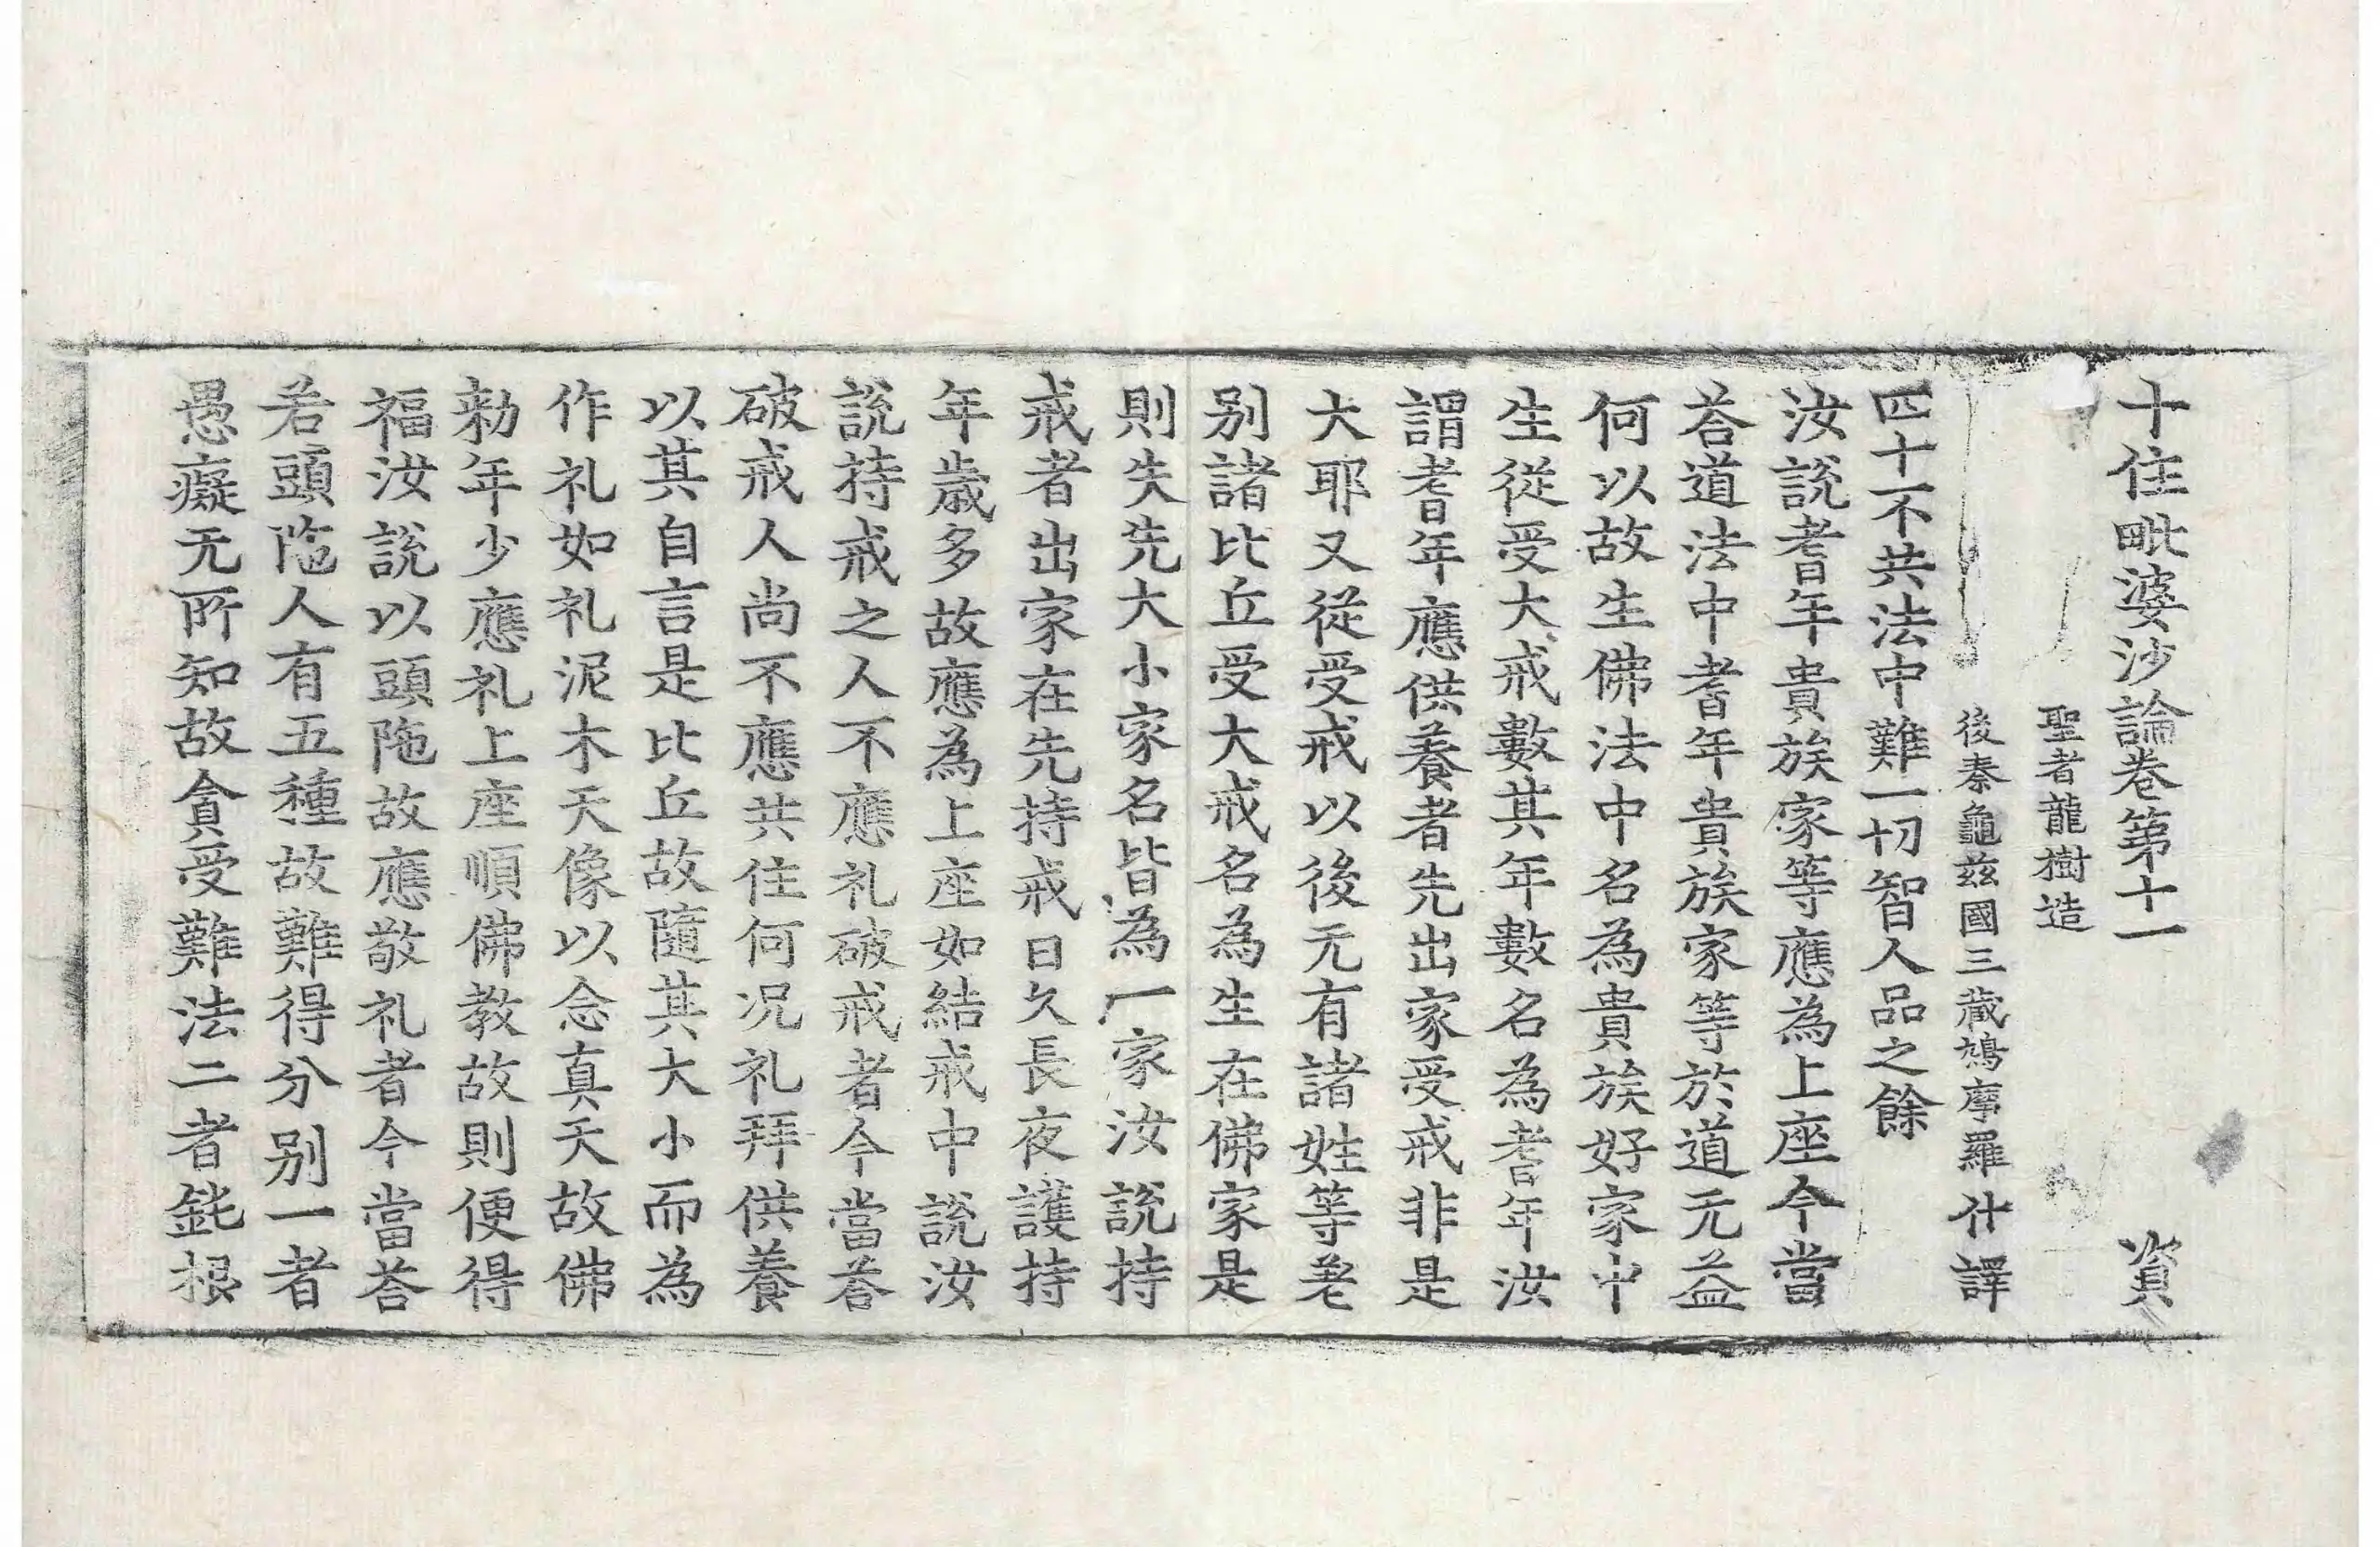 十住毗婆沙論卷第十一 資
聖者龍樹造
後秦龜茲國三藏鳩摩羅什譯
四十不共法中難一切智人品之餘
汝說耆年貴族家等應為上座今當
荅道法中耆年貴族家等於道无益
何以故生佛法中名為貴族好家中
生從受大戒數其年數名為耆年汝
謂耆年應供養者先出家受戒非是
大耶又從受戒以後无有諸姓等差
別諸比丘受大戒名為生在佛家是
則失先大小家名皆為一家汝說持
戒者出家在先持戒日久長夜護持
年歲多故應為上座如結戒中說汝
說持戒之人不應礼破戒者今當荅
破戒人尚不應共住何況礼拜供養
以其自言是比丘故隨其大小而為
作礼如礼泥木天像以念真天故佛
勑年少應礼上座順佛教故則便得
福汝說以頭陁故應敬礼者今當荅
若頭陁人有五種故難得分別一者
愚癡无所知故貪受難法二者鈍根